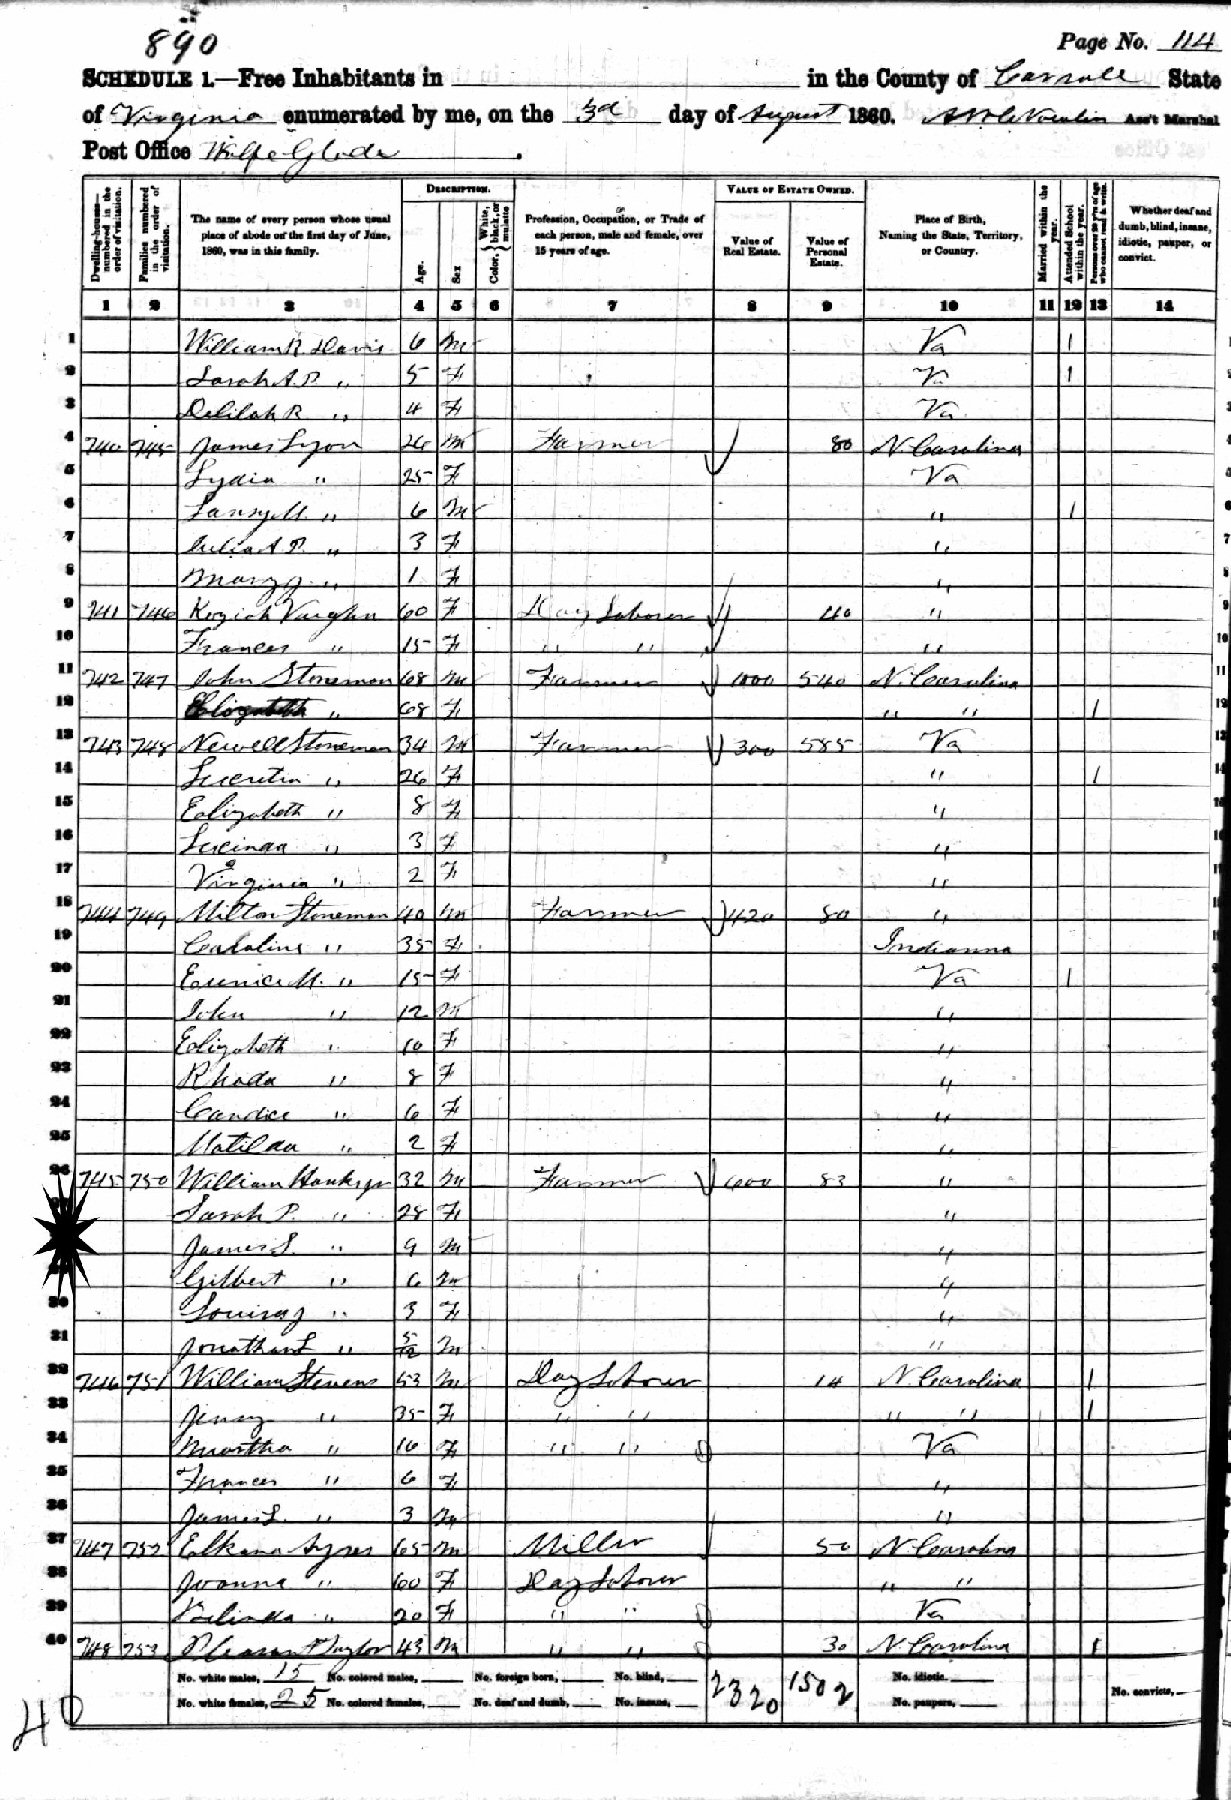 890
Page No. 114
SCHEDULE 1.—Free Inhabitants in in the County of Carroll State
of Virginia enumerated by me, on the 3d day of August 1860. Ass't Marshal
Post Office
DESCRIPTION. VALUE OF ESTATE OWNED.
Dwelling-houses—numbered in the order of visitation. Families numbered in the order of visitation. The name of every person whose usual place of abode on the first day of June, 1860, was in this family. Age. Sex Color, White, black, or mulatto Profession, Occupation, or Trade of each person, male and female, over 15 years of age. Value of Real Estate. Value of Personal Estate. Place of Birth, Naming the State, Territory, or Country. Married within the year. Attended School within the year. Persons over 20 y'rs of age who cannot read & write. Whether deaf and dumb, blind, insane, idiotic, pauper, or convict.
1 2 3 4 5 6 7 8 9 10 11 12 13 14
1 William R Davis 6 m Va 1
2 Sarah A. P. " 5 F Va 1
3 Delilah R " 4 F Va
4 740 745 James Lyon 26 m Farmer 80 N Carolina
5 Lydia " 25 F Va
6 M. " 6 m " 1
7 Julia A P. " 3 F "
8 Mary J. " 1 F "
9 741 746 Keziah Vaughn 60 F Day Laborer 40 "
10 Frances " 15 F " " "
11 742 747 John Stoneman 68 m Farmer 1000 540 N. Carolina
12 Elizabeth " 68 F " " 1
13 743 748 Newell Stoneman 34 m Farmer 300 585 Va
14 Lucretia " 26 F " 1
15 Elizabeth " 8 F "
16 Lucinda " 3 F "
17 Virginia " 2 F "
18 744 749 Milton Stoneman 40 m Farmer 420 80 "
19 Caroline " 35 F Indianna
20 Eunice M. " 15 F Va 1
21 John " 12 m "
22 Elizabeth " 10 F "
23 Rhoda " 8 F "
24 Candice " 6 F "
25 Matilda " 2 F "
26 745 750 William Hanks jr 32 m Farmer 600 83 "
Sarah P. " 28 F "
James S. " 9 m "
Gilbert " 6 m "
30 Louisa J " 3 F "
31 Jonathan L " 5/12 m "
32 746 751 William Stevens 53 m Day Laborer 14 N Carolina 1
33 Jenny " 35 F " " " " 1
34 Martha " 16 F " " Va
35 Frances " 6 F "
36 James L. " 3 m "
37 747 752 Elkana Ayres 65 m Miller 50 N Carolina
38 Joanna " 60 F Day Laborer " "
39 " 20 F " " Va
40 748 753 Pleasant Taylor 43 m " " 30 N Carolina 1
No. white males, 15 No. colored males, No. foreign born, No. blind, 2320 1502 No. idiotic.
No. white females, 25 No. colored females, No. deaf and dumb, No. insane, No. paupers, No. convicts,
40